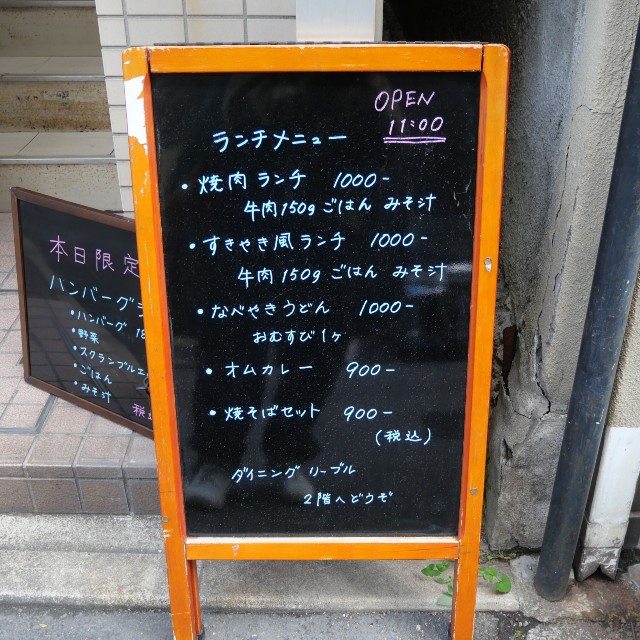 OPEN
11:00
ランチメニュー
・焼肉ランチ 1000-
牛肉150g ごはん みそ汁
・すきやき風ランチ 1000-
牛肉150g ごはん みそ汁
・なべやきうどん 1000-
おむすび1ヶ
・オムカレー 900-
・焼そばセット 900-
(税込)
ダイニング リーブル
2階へどうぞ
本日限定
ハンバーグ
・ハンバーグ 18
・野菜
・スクランブルエ
・ごはん
・みそ汁
税